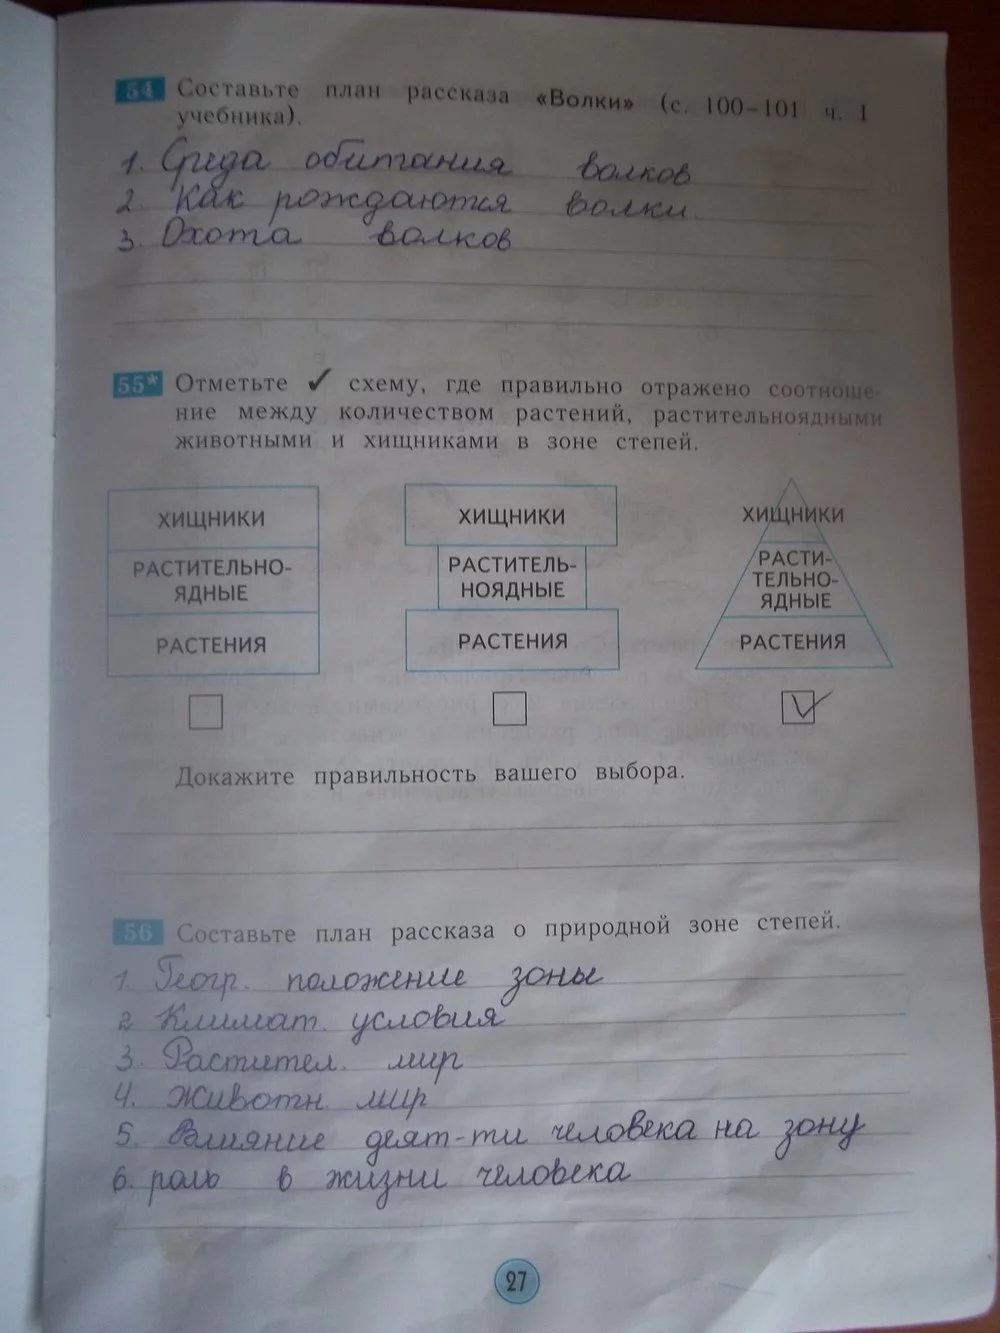 54 Составьте план рассказа «Волки» (с. 100–101 ч. 1
учебника).
1. Среда обитания волков
2. Как рождаются волки.
3. Охота волков
55* Отметьте ✓ схему, где правильно отражено соотноше-
ние между количеством растений, растительноядными
животными и хищниками в зоне степей.
ХИЩНИКИ
РАСТИТЕЛЬНО-
ЯДНЫЕ
РАСТЕНИЯ
ХИЩНИКИ
РАСТИТЕЛЬ-
НОЯДНЫЕ
РАСТЕНИЯ
ХИЩНИКИ
РАСТИ-
ТЕЛЬНО-
ЯДНЫЕ
РАСТЕНИЯ
Докажите правильность вашего выбора.
56 Составьте план рассказа о природной зоне степей.
1. Геогр. положение зоны
2 Климат. условия
3. Растител. мир
4. Животн. мир
5. Влияние деят-ти человека на зону
6. роль в жизни человека
27